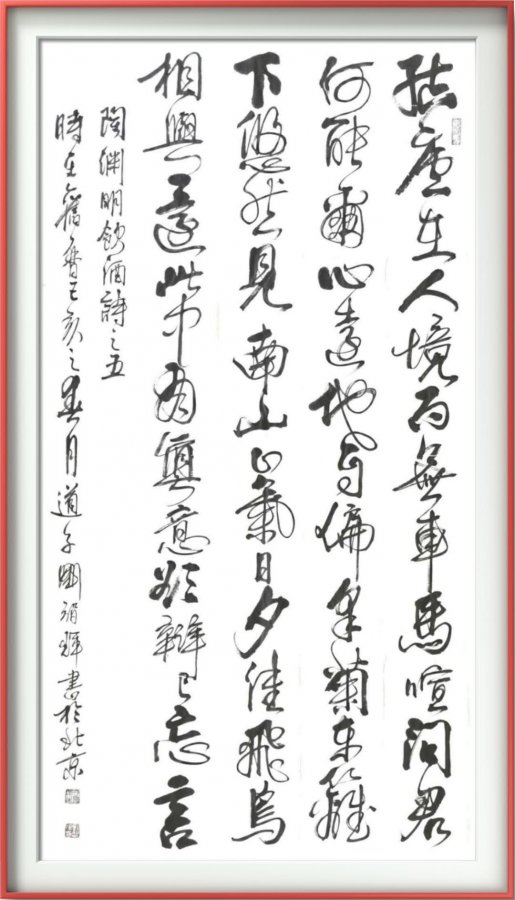 結廬在人境而無車馬喧問君
何能爾心遠地自偏采菊東籬
下悠然見南山山氣日夕佳飛鳥
相與還此中有真意欲辯已忘言
陶淵明飲酒詩之五
時在舊曆己亥之春月道子輝書於北京